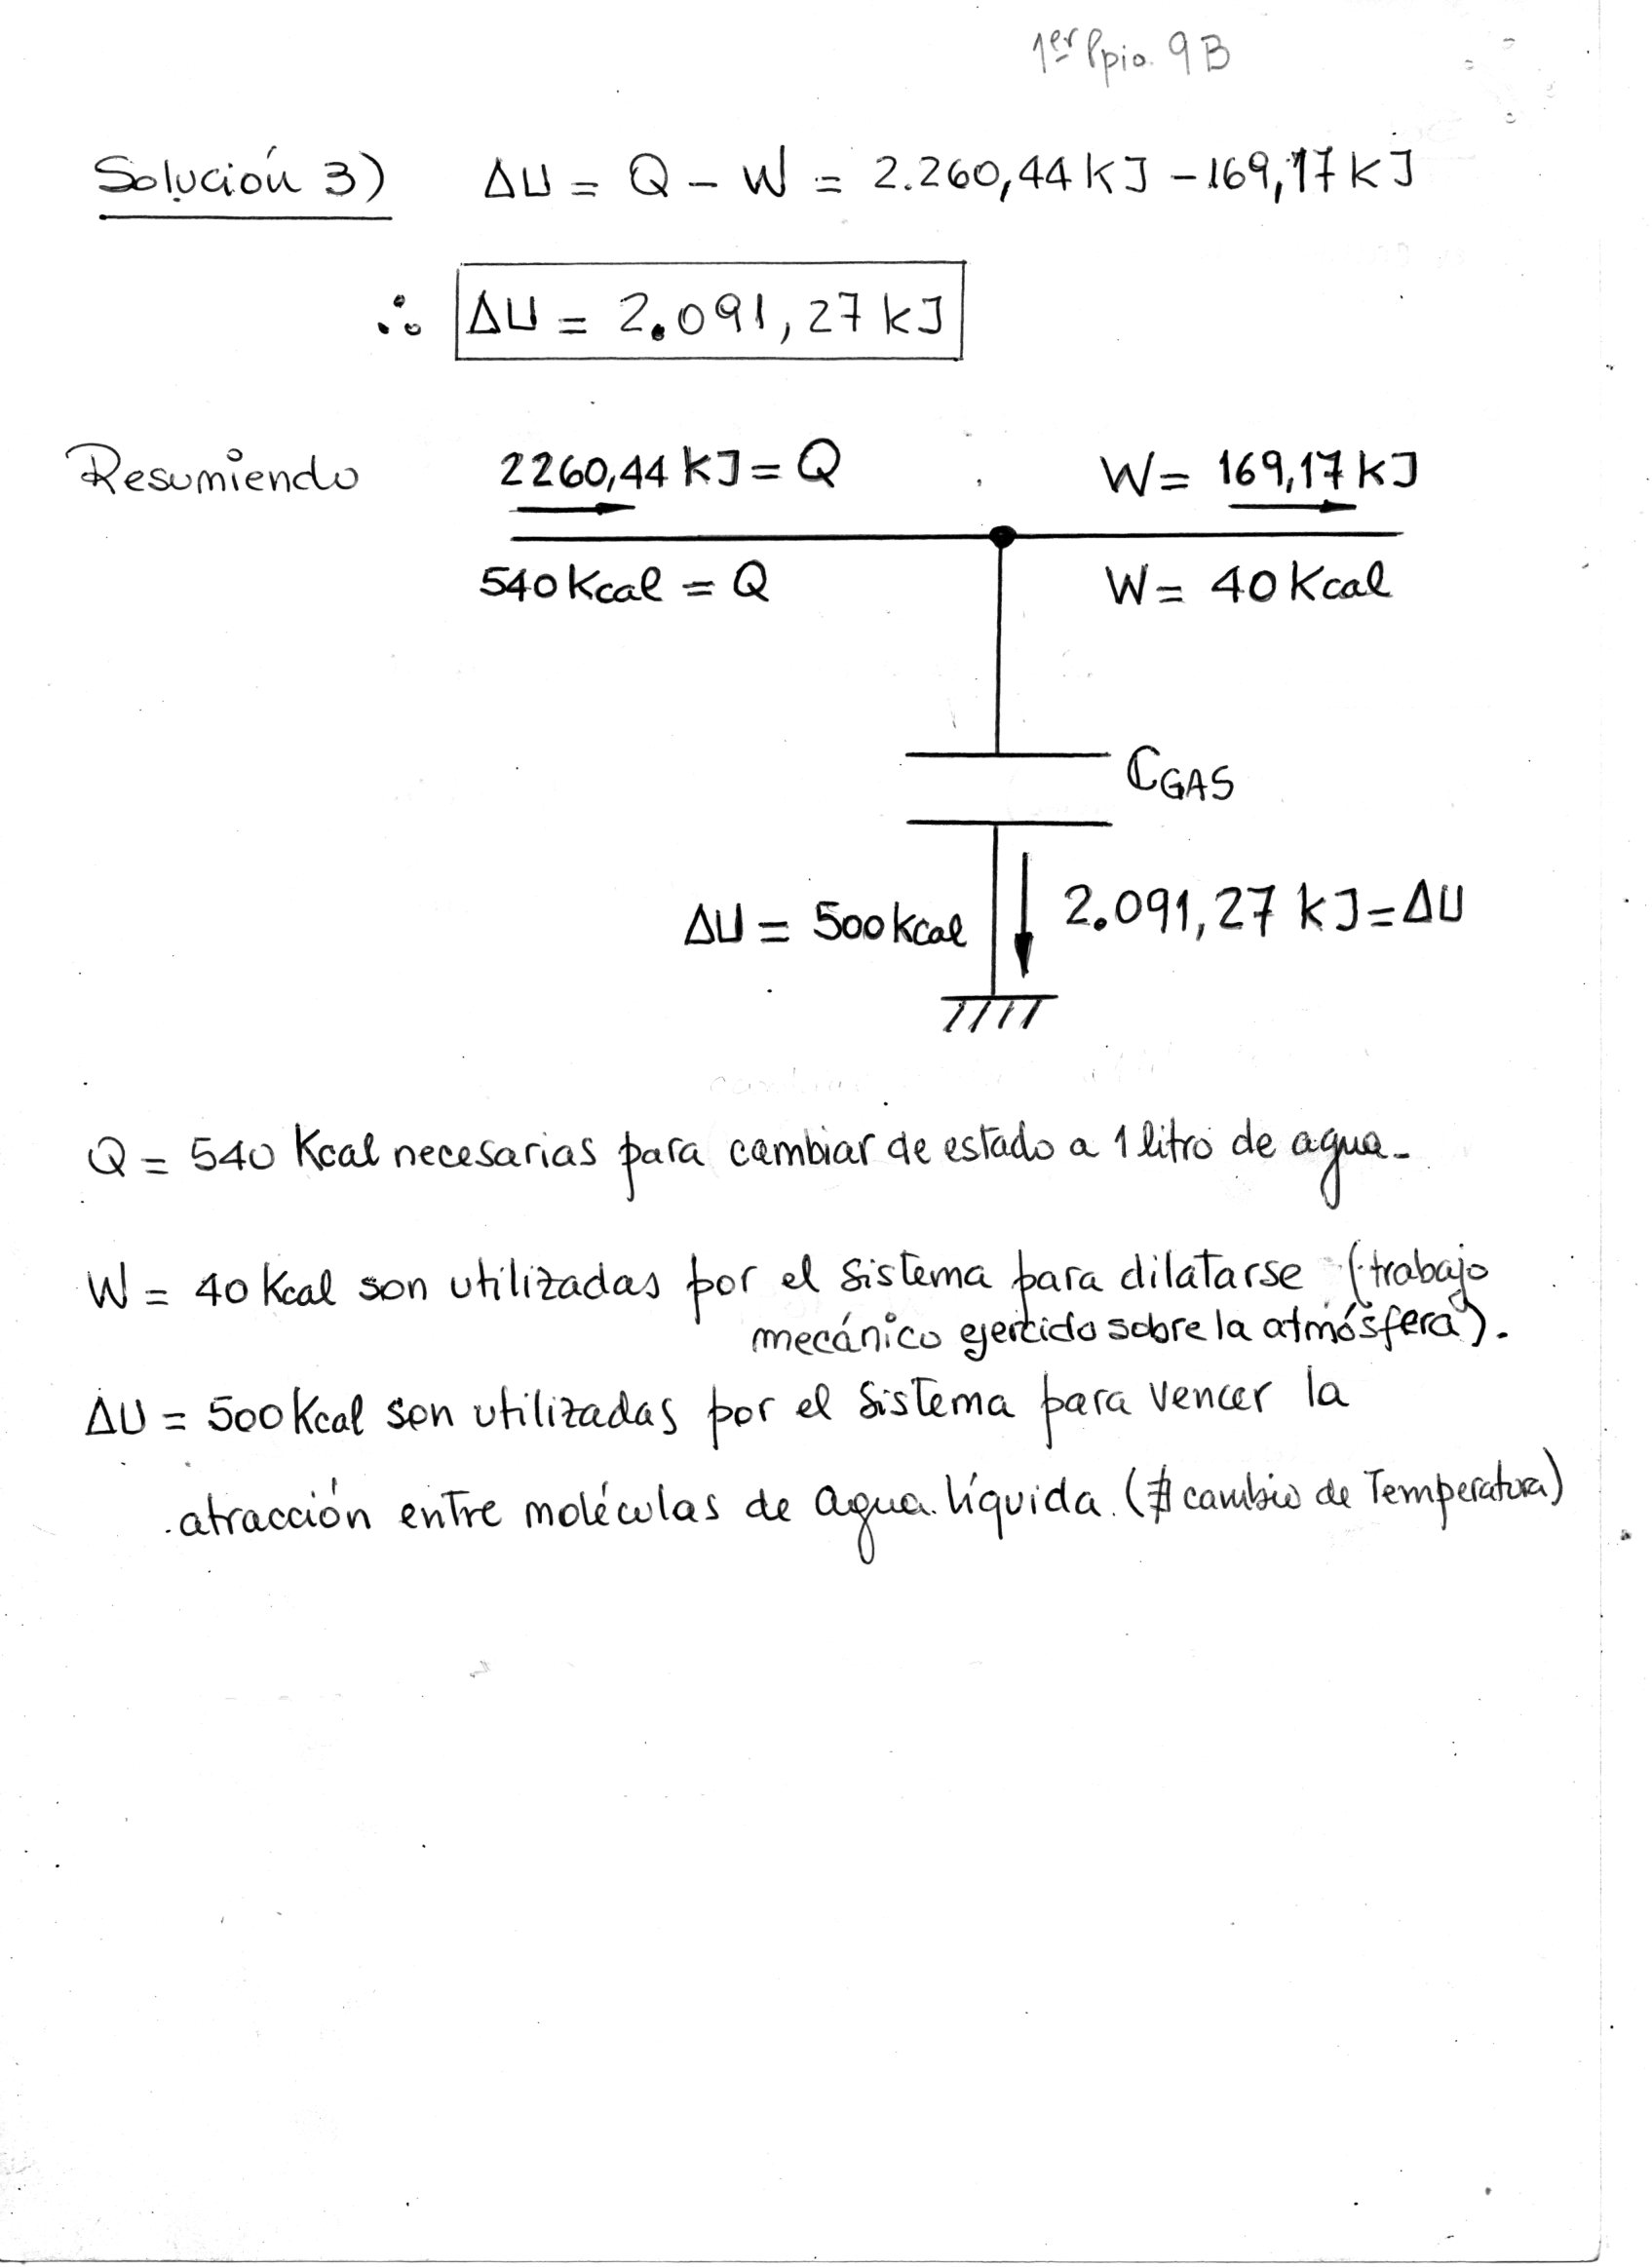 1er Ppio. 9B
Solución 3) ΔU = Q - W = 2.260,44 KJ - 169,17 KJ
∴ ΔU = 2.091,27 kJ
Resumiendo 2260,44 KJ = Q W = 169,17 KJ
540 Kcal = Q W = 40 Kcal
CGAS
ΔU = 500 kcal 2.091,27 kJ = ΔU
Q = 540 Kcal necesarias para cambiar de estado a 1 litro de agua.
W = 40 Kcal son utilizadas por el sistema para dilatarse (trabajo
mecánico ejercido sobre la atmósfera).
ΔU = 500 Kcal son utilizadas por el sistema para vencer la
atracción entre moléculas de agua líquida. (∄ cambio de Temperatura)